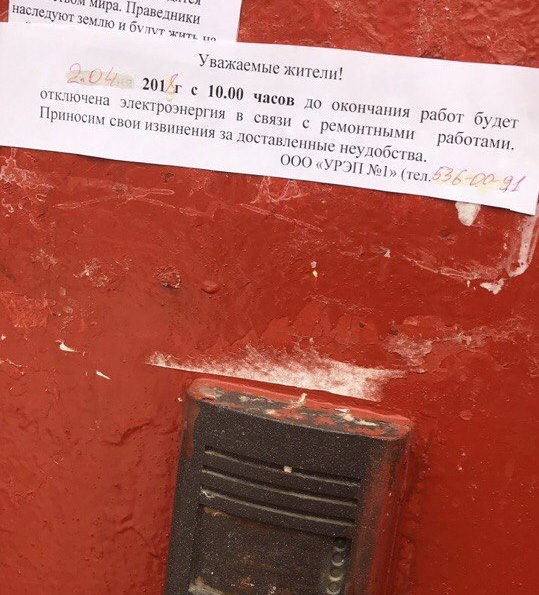 мира. Праведники
наследуют землю и будут жить на
Уважаемые жители!
2.04 2018г с 10.00 часов до окончания работ будет
отключена электроэнергия в связи с ремонтными работами.
Приносим свои извинения за доставленные неудобства.
ООО «УРЭП №1» (тел.536-00-91